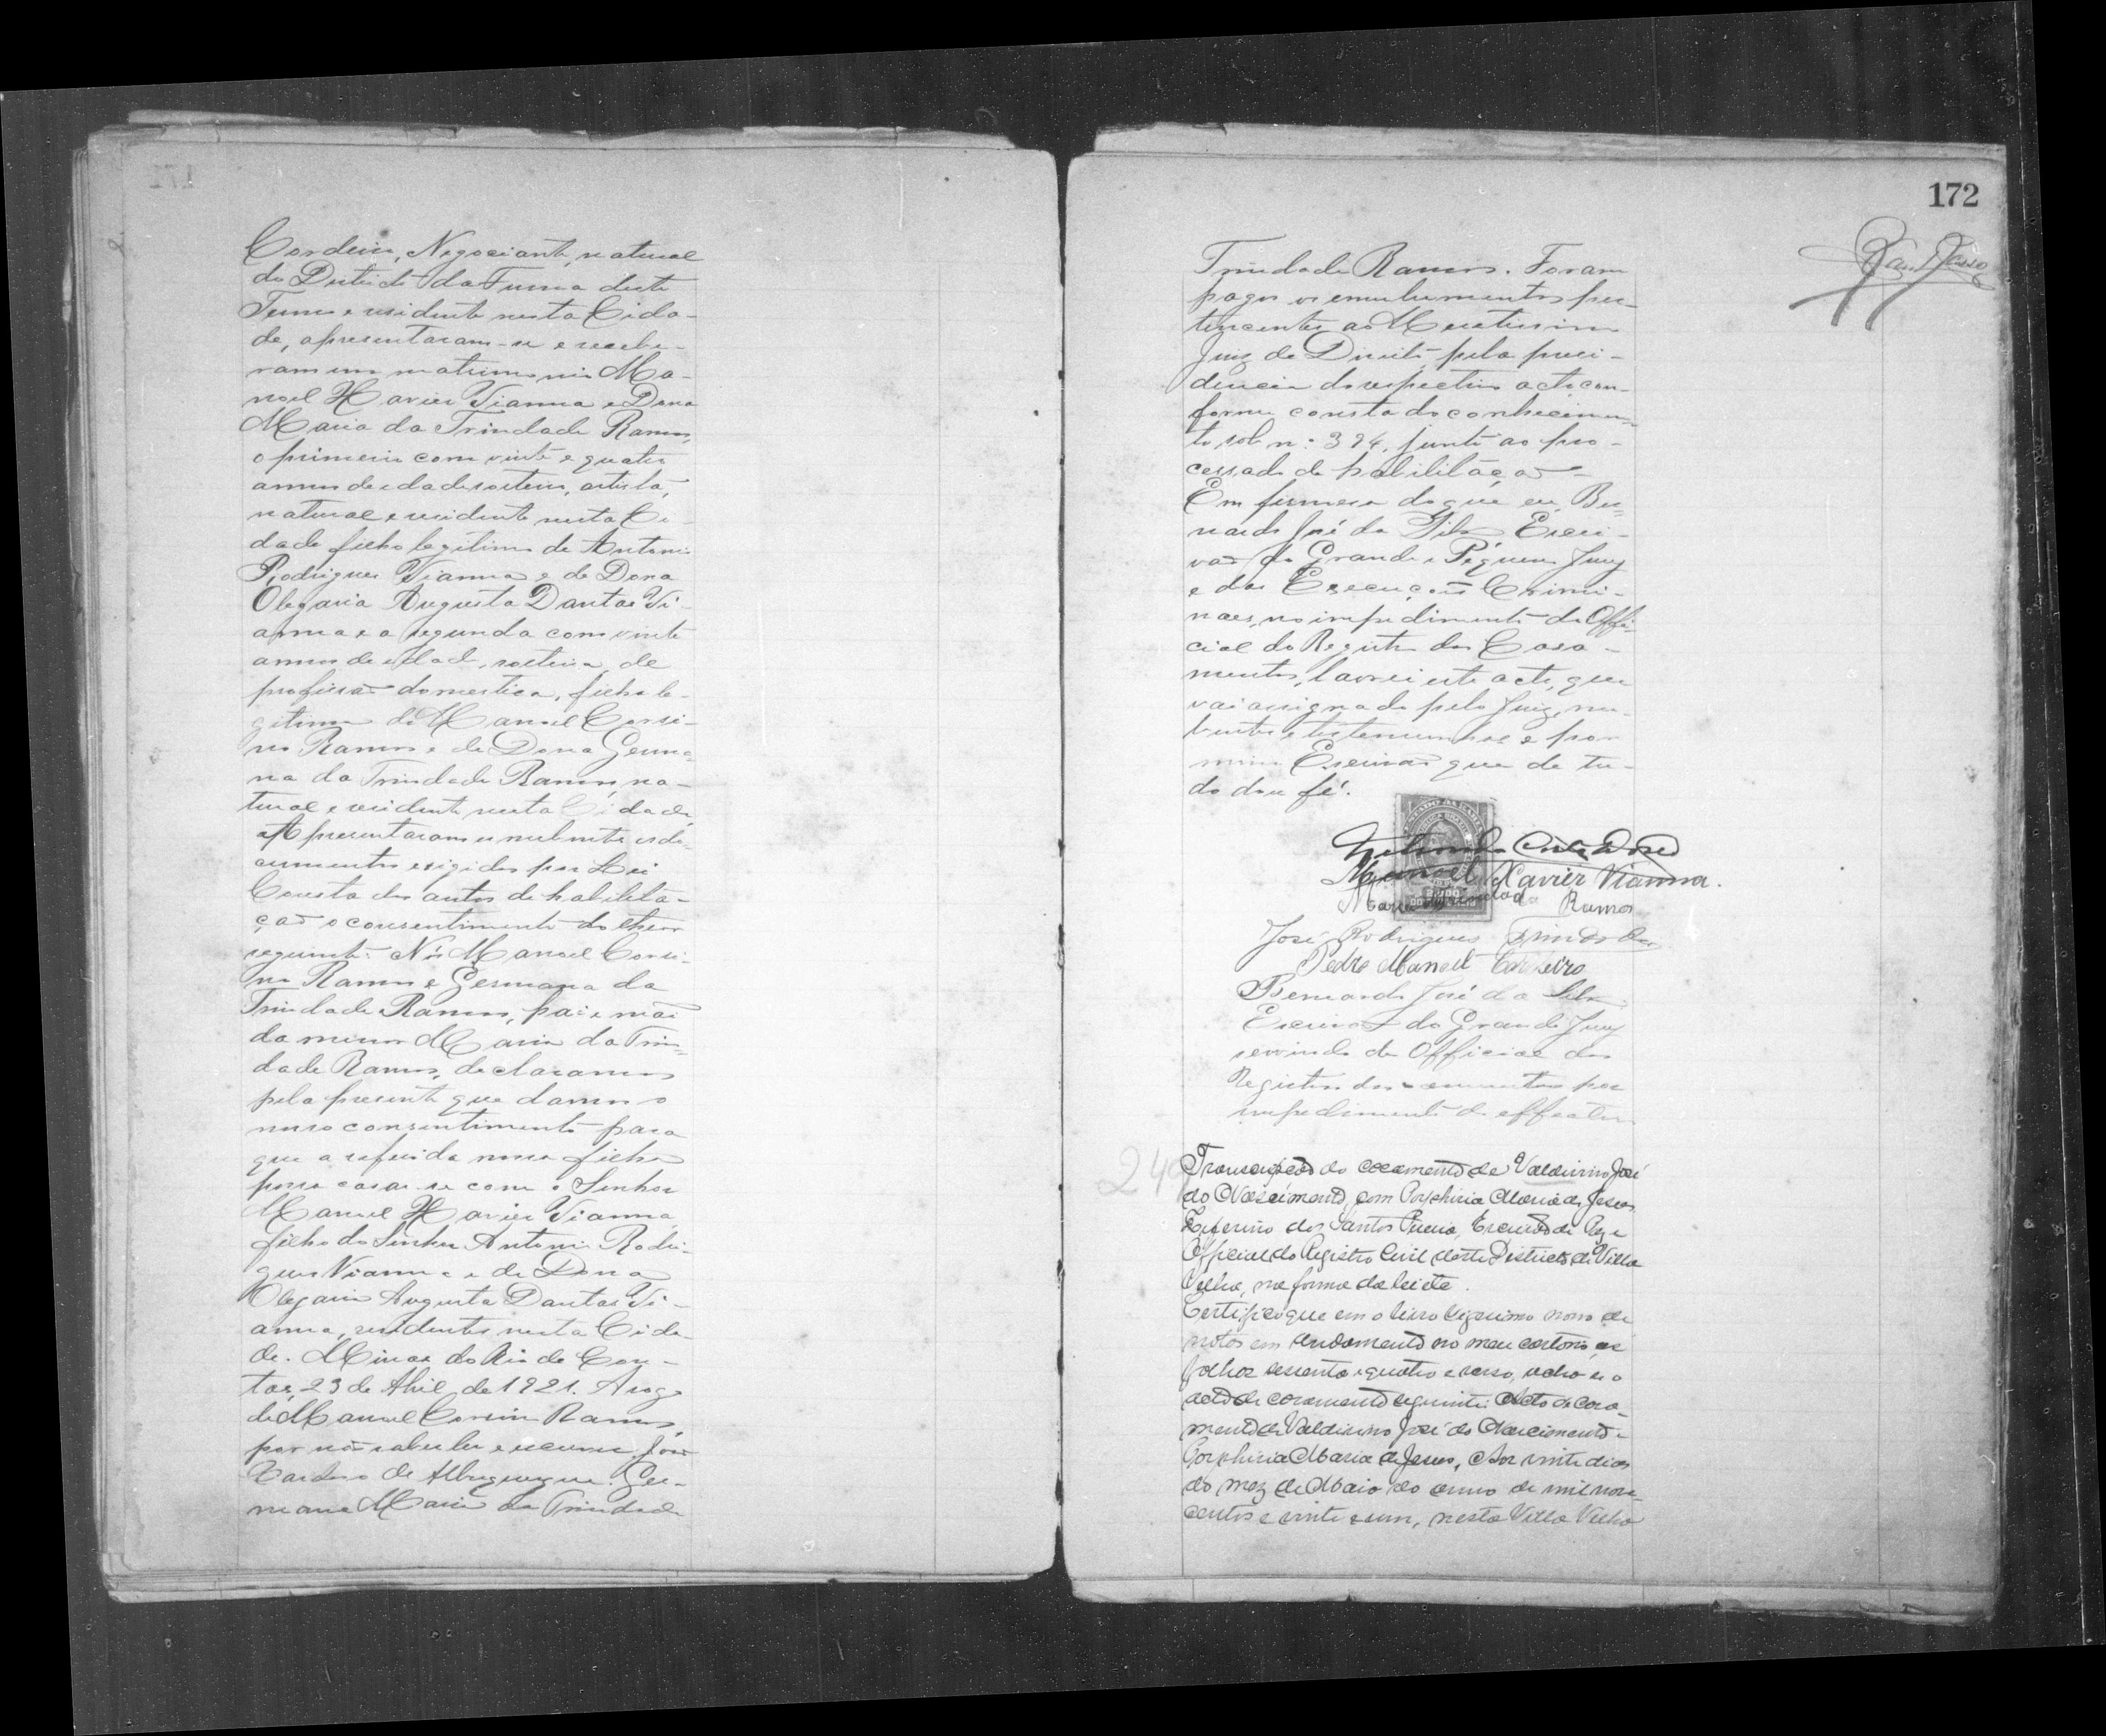 Cordeiro, Negociante, natural
do Districto da Furna deste
Termo e residente nesta Cida-
de, apresentaram-se e recebe-
ram em matrimonio Ma-
noel Xavier Vianna e Dona
Maria da Trindade Ramos,
o primeiro com vinte e quatro
annos de edade, solteiro, artista,
natural e residente nesta Ci-
dade filho legitimo de Antonio
Rodrigues Vianna e de Dona
Olegaria Augusta Dantas Vi-
anna e a segunda com vinte
annos de edade, solteira, de
profissão domestica, filha le-
gitima de Manoel Corsi-
no Ramos e de Dona Germa-
na da Trindade Ramos, na-
tural e residente nesta Cidade,
Apresentaram os nubentes os do-
cumentos exigidos por Lei
Consta dos autos de habilita-
ção o consentimento do theor
seguinte: Nós Manoel Corsi-
no Ramos e Germana da
Trindade Ramos, pai e mãe
da menor Maria da Trin-
dade Ramos, declaramos
pela presente que damos o
nosso consentimento para
que a referida nossa filha
possa casar-se com o Senhor
Manoel Xavier Vianna,
filho do Senhor Antonio Rodri-
gues Vianna e de Dona
Olegaria Augusta Dantas Vi-
anna, residentes nesta Cida-
de. Minas do Rio de Con-
tas, 23 de Abril de 1921. A rogo
de Manoel Corsino Ramos,
por não saber ler e escrever José
Cardoso de Albuquerque. Ger-
mana Maria da Trindade
172
Trindade Ramos. Foram
pagos os emolumentos per-
tencentes ao Meretissimo
Juiz de Direito pela presi-
dencia do respectivo acto, con-
forme consta do conhecimen-
to sob n: 394, junto ao pro-
cessado de habilitação
Em firmeza do que eu, Ber-
nardo José da Silva Escri-
vão do Grande e Pequeno Jury
e das Execuções Crimi-
naes, no impedimento do Offi-
cial do Registro dos Casa-
mentos, lavrei este acto, que
vai assignado pelo Juiz, nu-
bentes e testemunhas e por
mim Escrivão que de tu-
do dou fé.
Manoel Xavier Vianna.
Maria Trindade Ramos
José Rodrigues Trindade
Pedro Manoel Cordeiro
Bernardo José da Silva
Escrivão do Grande Jury
servindo de Official do
Registro dos casamentos por
impedimento do effectivo
249
Transcripção do casamento de Valdivino José
do Nascimento, com Porphiria Maria de Jesus
Zeferino dos Santos Escrivão de Paz e
Official do Registro Civil deste Districto de Villa
Velha, na forma da lei etc.
Certifico que em o livro vigesimo nono de
notas em andamento no meu cartorio, as
folhas sessenta e quatro e verso, acha-se o
acto de casamento seguinte: Acto de casa-
mento de Valdivino José do Nascimento e
Porphiria Maria de Jesus. Aos vinte dias
do mez de Maio do anno de mil nove-
centos e vinte e um, nesta Villa Velha